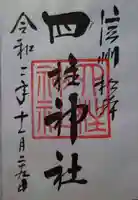 信州 松本
四柱神社
令和二年十一月二十九日